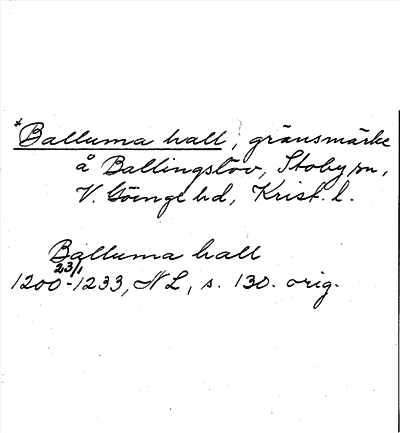 *Balluma hall, gränsmärke
å Ballingslöv, Stoby sn,
V. Göinge hd, Krist. l.
Balluma hall
1200 23/1 -1233, NL, s. 130. orig.